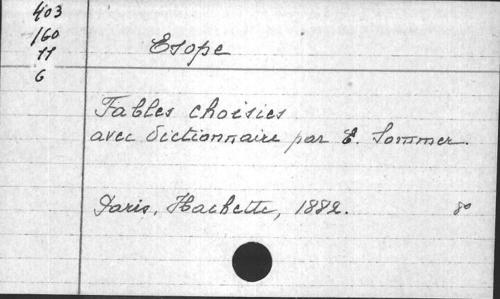 403
160
11
6
Esope
Fables choisies
avec dictionnaire par E. Sommer.
Paris, Hachette, 1882. 8°